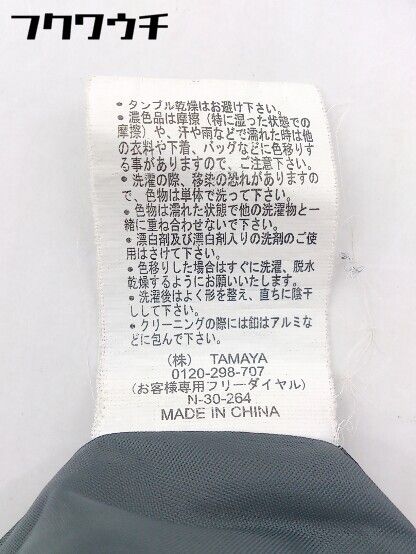 フクワウチ
• タンブル乾燥はお避け下さい。
• 濃色品は摩擦（特に湿った状態での
摩擦）や、汗や雨などで濡れた時は他
の衣料や下着、バッグなどに色移りす
る事がありますので、ご注意下さい。
• 洗濯の際、移染の恐れがありますの
で、色物は単体で洗って下さい。
• 色物は濡れた状態で他の洗濯物と一
緒に重ね合わせないで下さい。
• 漂白剤及び漂白剤入りの洗剤のご使
用はさけて下さい。
• 色移りした場合はすぐに洗濯、脱水
乾燥するようにお願いいたします。
• 洗濯後はよく形を整え、直ちに陰干
しして下さい。
• クリーニングの際には釦はアルミな
どに包んで下さい。
（株） TAMAYA
0120-298-707
（お客様専用フリーダイヤル）
N-30-264
MADE IN CHINA